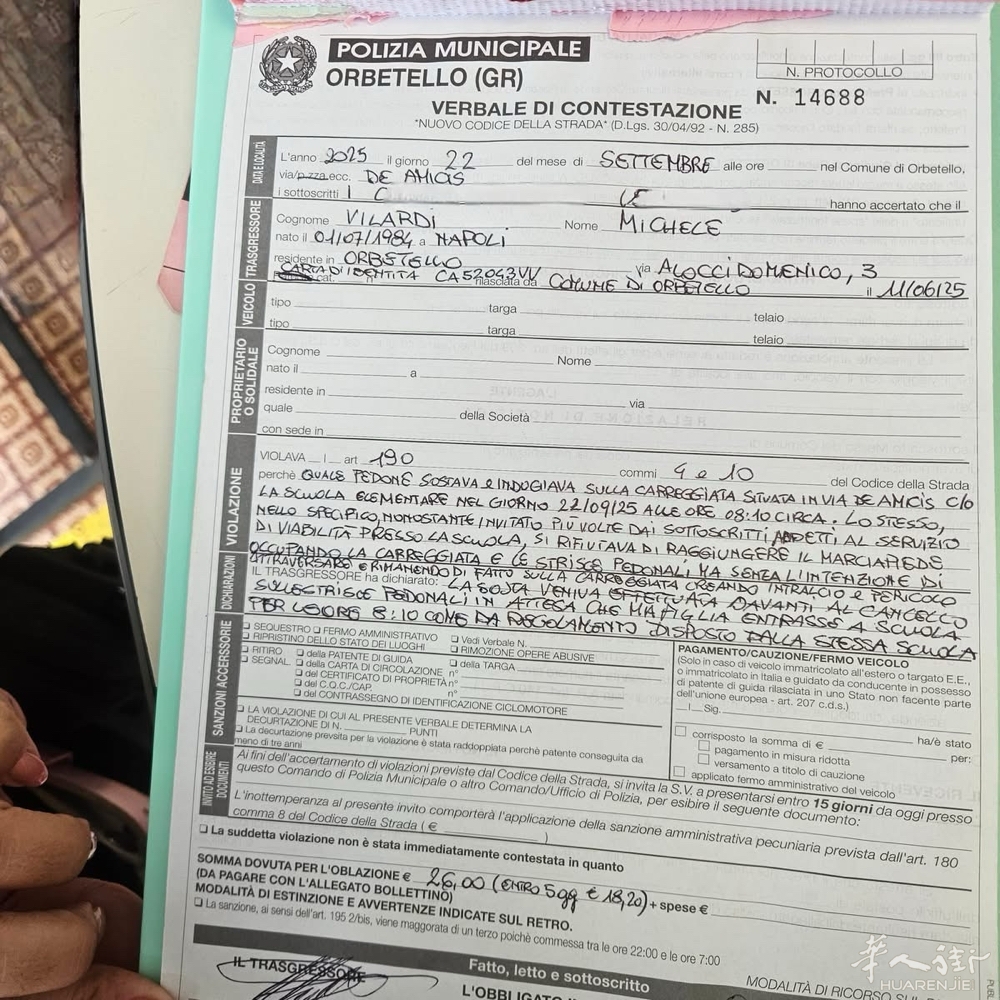 POLIZIA MUNICIPALE
ORBETELLO (GR)
N. PROTOCOLLO
VERBALE DI CONTESTAZIONE
N. 14688
"NUOVO CODICE DELLA STRADA" (D.Lgs. 30/04/92 - N. 285)
DATA E LOCALITÀ
L'anno 2025 il giorno 22 del mese di SETTEMBRE alle ore nel Comune di Orbetello,
via/p.zza.ecc. DE AMICIS
i sottoscritti hanno accertato che il
TRASGRESSORE
Cognome VILARDI Nome MICHELE
nato il 01/07/1984 a NAPOLI
residente in ORBETELLO via ALOCCI DOMENICO, 3
CARTA DI IDENTITA CA52043VV rilasciata da COMUNE DI ORBETELLO il 11/06/25
VEICOLO
tipo targa telaio
tipo targa telaio
PROPRIETARIO O SOLIDALE
Cognome Nome
nato il a
residente in via
quale della Società
con sede in
VIOLAZIONE
VIOLAVA art 190 commi 4 e 10 del Codice della Strada
perchè QUALE PEDONE SOSTAVA e INDUGIAVA SULLA CARREGGIATA SITUATA IN VIA DE AMICIS C/O
LA SCUOLA ELEMENTARE NEL GIORNO 22/09/25 ALLE ORE 08:10 CIRCA. LO STESSO,
NELLO SPECIFICO, NONOSTANTE INVITATO PIÙ VOLTE DAI SOTTOSCRITTI ADDETTI AL SERVIZIO
DI VIABILITÀ PRESSO LA SCUOLA, SI RIFIUTAVA DI RAGGIUNGERE IL MARCIAPIEDE
OCCUPANDO LA CARREGGIATA E LE STRISCE PEDONALI MA SENZA L'INTENZIONE DI
ATTRAVERSARE E RIMANENDO DI FATTO SULLA CARREGGIATA CREANDO INTRALCIO E PERICOLO
DICHIARAZIONI
IL TRASGRESSORE ha dichiarato: LA SOSTA VENIVA EFFETTUATA DAVANTI AL CANCELLO
SULLE STRISCE PEDONALI IN ATTESA CHE MIA FIGLIA ENTRASSE A SCUOLA
PER LE ORE 8:10 COME DA REGOLAMENTO DISPOSTO DALLA STESSA SCUOLA
SANZIONI ACCERSSORIE
SEQUESTRO FERMO AMMINISTRATIVO Vedi Verbale N.
RIPRISTINO DELLO STATO DEI LUOGHI RIMOZIONE OPERE ABUSIVE
RITIRO della PATENTE DI GUIDA della TARGA
SEGNAL. della CARTA DI CIRCOLAZIONE n°
del CERTIFICATO DI PROPRIETÀ n°
del C.Q.C./CAP. n°
del CONTRASSEGNO DI IDENTIFICAZIONE CICLOMOTORE
LA VIOLAZIONE DI CUI AL PRESENTE VERBALE DETERMINA LA
DECURTAZIONE DI N. PUNTI
La decurtazione prevista per la violazione è stata raddoppiata perchè patente conseguita da
meno di tre anni
PAGAMENTO/CAUZIONE/FERMO VEICOLO
(Solo in caso di veicolo immatricolato all'estero o targato E.E.,
o immatricolato in Italia e guidato da conducente in possesso
di patente di guida rilasciata in uno Stato non facente parte
dell'unione europea - art. 207 c.d.s.)
Sig.
ha/è stato
corrisposto la somma di € per:
pagamento in misura ridotta
versamento a titolo di cauzione
applicato fermo amministrativo del veicolo
INVITO AD ESIBIRE DOCUMENTI
Ai fini dell'accertamento di violazioni previste dal Codice della Strada, si invita la S.V. a presentarsi entro 15 giorni da oggi presso
questo Comando di Polizia Municipale o altro Comando/Ufficio di Polizia, per esibire il seguente documento:
L'inottemperanza al presente invito comporterà l'applicazione della sanzione amministrativa pecuniaria prevista dall'art. 180
comma 8 del Codice della Strada (€ )
La suddetta violazione non è stata immediatamente contestata in quanto
SOMMA DOVUTA PER L'OBLAZIONE € 26,00 (ENTRO 5gg € 18,20) + spese €
(DA PAGARE CON L'ALLEGATO BOLLETTINO)
MODALITÀ DI ESTINZIONE E AVVERTENZE INDICATE SUL RETRO.
La sanzione, ai sensi dell'art. 195 2/bis, viene maggiorata di un terzo poichè commessa tra le ore 22:00 e le ore 7:00
Fatto, letto e sottoscritto
IL TRASGRESSORE
MODALITÀ DI RICORSO
华人街
HUARENJIE